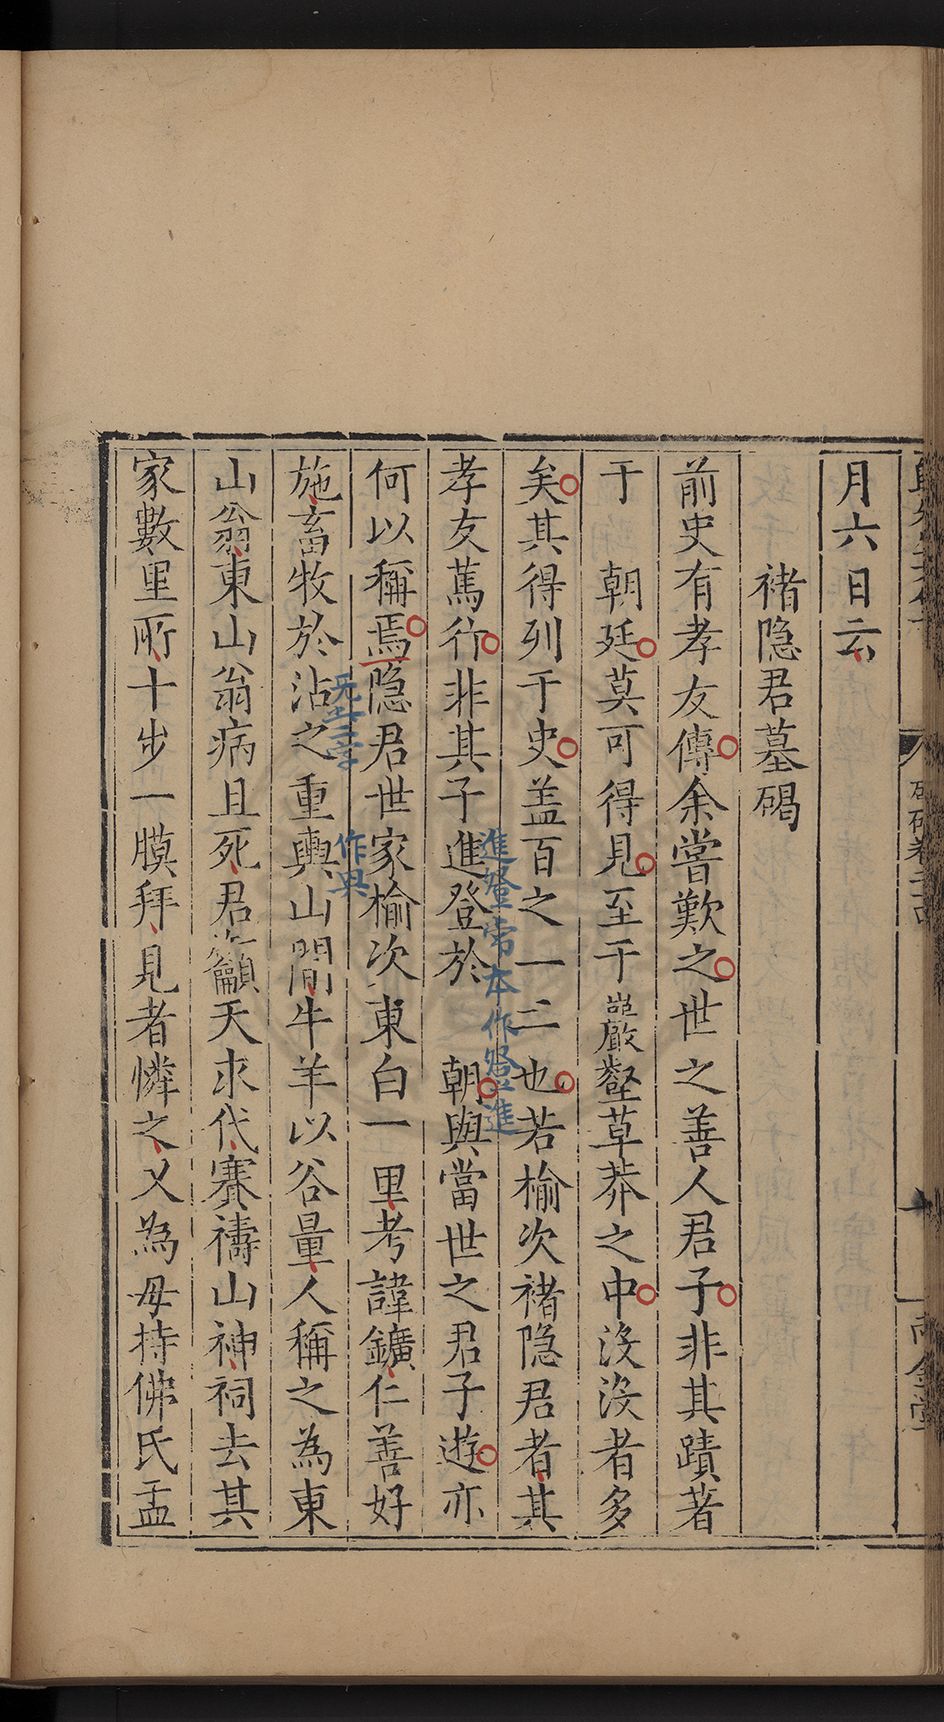 月六日云
褚隐君墓碣
前史有孝友傳余嘗歎之世之善人君子非其蹟著
于　朝廷莫可得見至于巖壑草莽之中沒沒者多
矣其得列于史盖百之一二也若榆次褚隐君者其
孝友篤行非其子進登於　朝與當世之君子遊亦
進登常本作登進
何以稱焉隐君世家榆次東白一里考諱鑛仁善好
無
字
作與
施畜牧於沾之重輿山閒牛羊以谷量人稱之為東
山翁東山翁病且死君籲天求代賽禱山神祠去其
家數里所十步一膜拜見者憐之又為母持佛氏盂